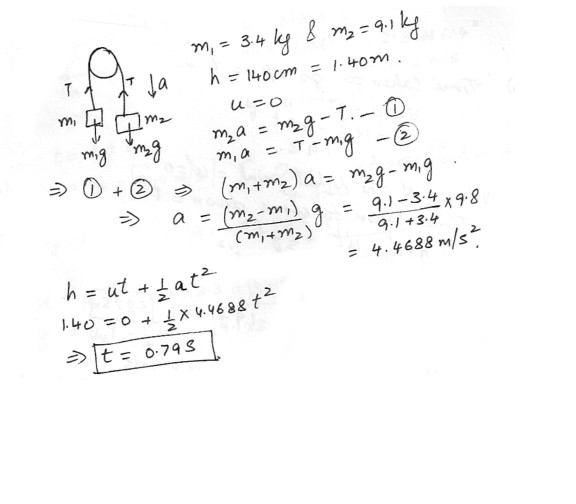 m₁ = 3.4 kg & m₂ = 9.1 kg
h = 140 cm = 1.40 m.
u = 0
T T ↓a
m₁ m₂
m₁g m₂g
m₂a = m₂g - T. - ①
m₁a = T - m₁g - ②
⇒ ① + ② ⇒ (m₁+m₂) a = m₂g - m₁g.
⇒ a = (m₂-m₁)/(m₁+m₂) g = 9.1-3.4/9.1+3.4 × 9.8
= 4.4688 m/s².
h = ut + ½ at²
1.40 = 0 + ½ × 4.4688 t²
⇒ t = 0.79 S